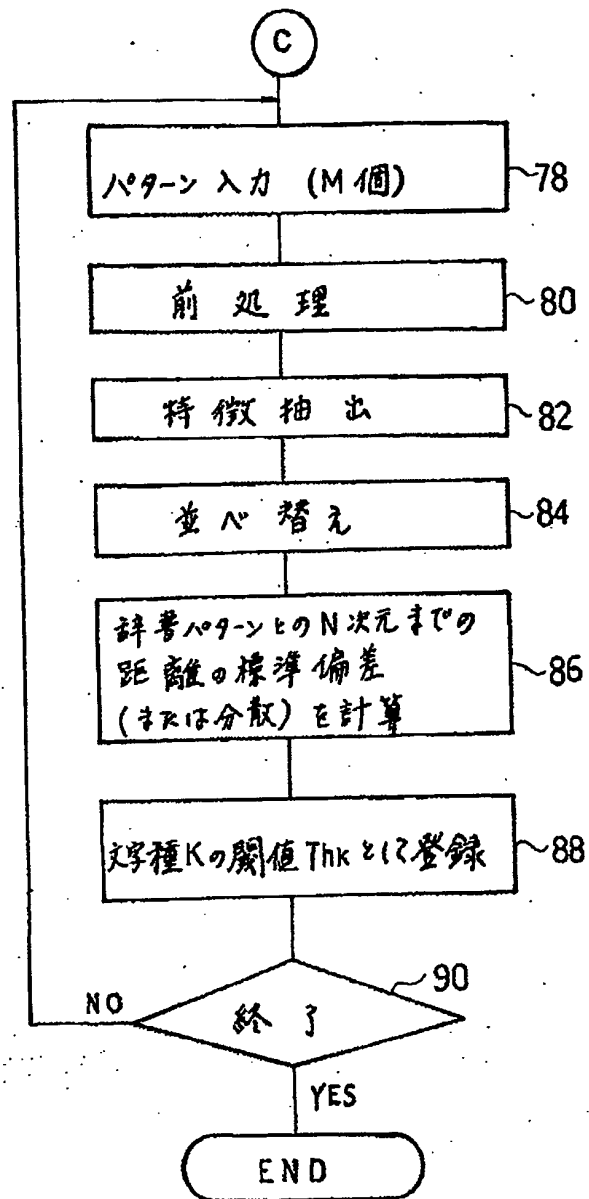 C
パターン入力 (M個)
78
前処理
80
特徴抽出
82
並べ替え
84
辞書パターンとのN次元までの
距離の標準偏差
(または分散)を計算
86
文字種Kの閾値Thkとして登録
88
終了
90
NO
YES
END